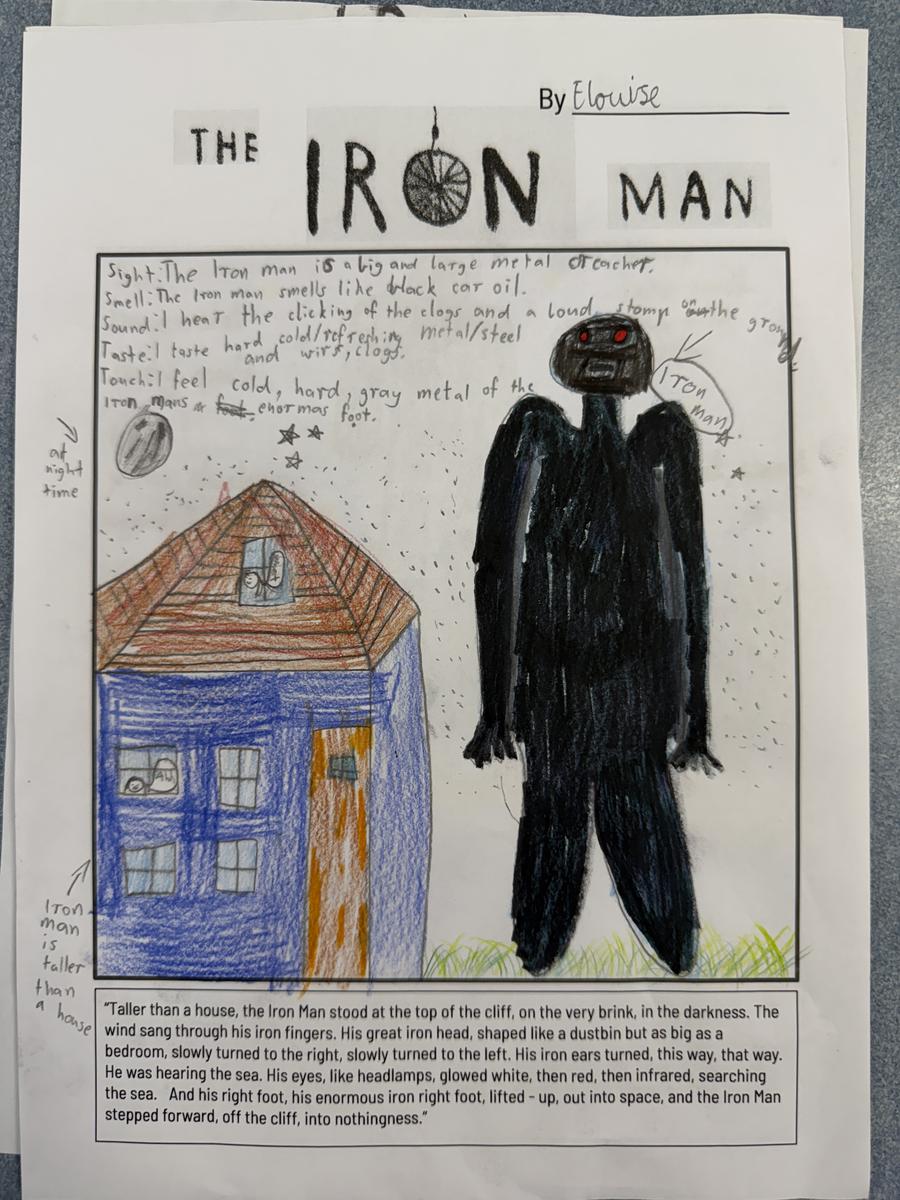 By Elouise
THE IRON MAN
Sight: The Iron man is a big and large metal creacher.
Smell: The Iron man smells like black car oil.
Sound: I hear the clicking of the clogs and a loud stomp on the ground
Taste: I taste hard cold/refreshing metal/steel
and wirs, clogs.
Touch: I feel cold, hard, gray metal of the
Iron mans enormas foot.
Iron
man
at
night
time
AH
Iron
man
is
taller
than
a house
"Taller than a house, the Iron Man stood at the top of the cliff, on the very brink, in the darkness. The
wind sang through his iron fingers. His great iron head, shaped like a dustbin but as big as a
bedroom, slowly turned to the right, slowly turned to the left. His iron ears turned, this way, that way.
He was hearing the sea. His eyes, like headlamps, glowed white, then red, then infrared, searching
the sea.   And his right foot, his enormous iron right foot, lifted - up, out into space, and the Iron Man
stepped forward, off the cliff, into nothingness."